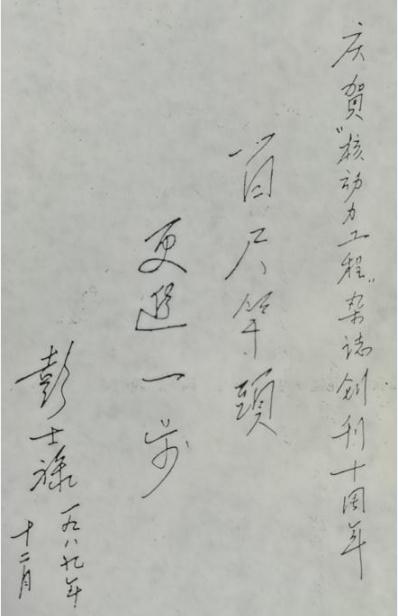 庆贺"核动力工程"杂誌创刊十周年
百尺竿頭
更進一步
彭士禄
一九八九年
十二月